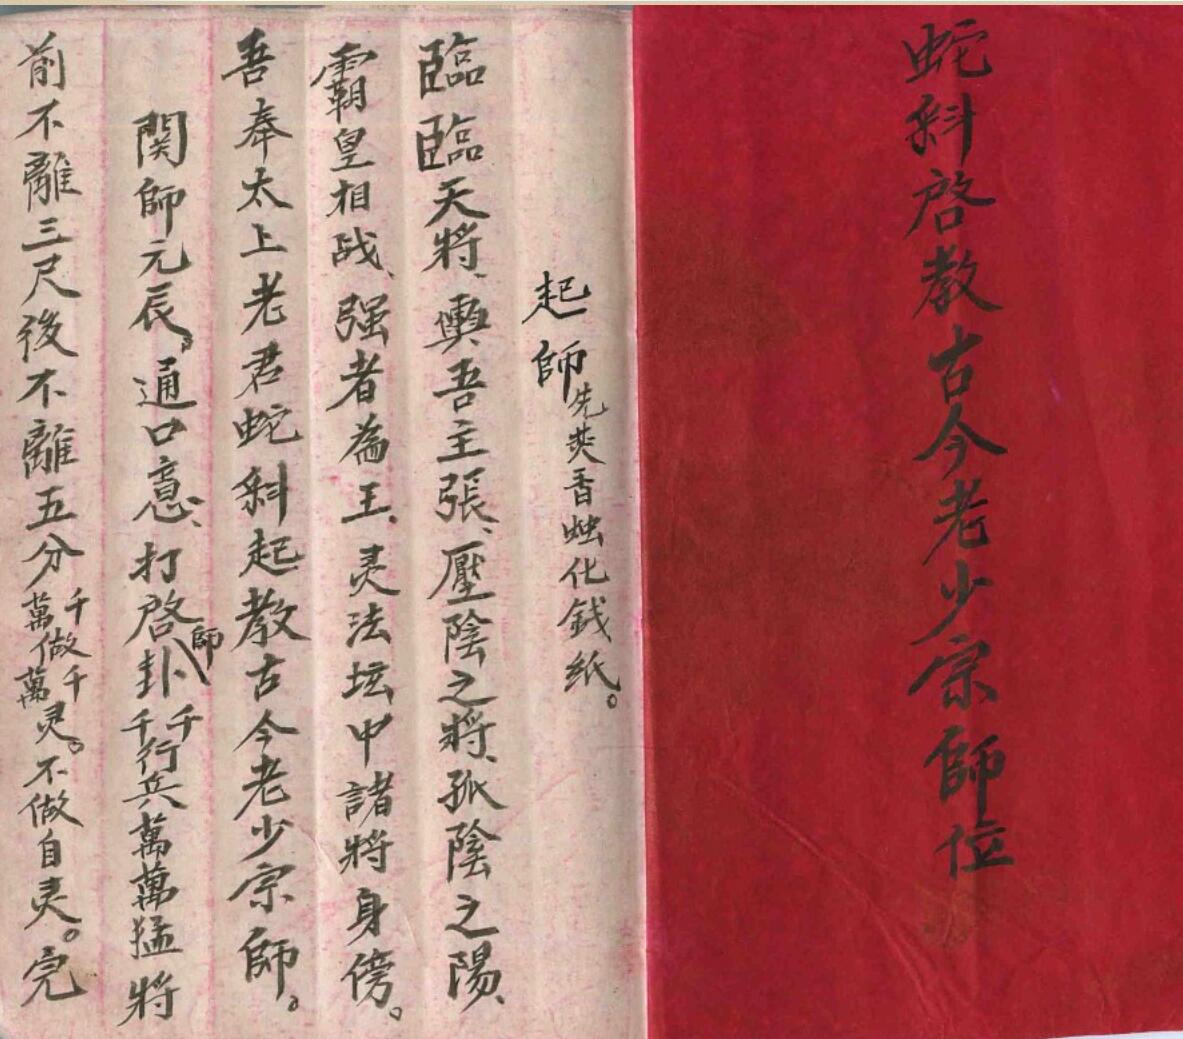 蛇斜啓教古今老少宗師位
起師先焚香燭化錢紙。
臨臨天將、與吾主張、壓陰之將、孤陰之陽、
霸皇相战、强者為王、灵法坛中諸將身傍。
吾奉太上老君蛇斜起教古今老少宗師。
関師元辰。通口意、打啓師卦千千行兵萬萬猛將
前不離三尺後不離五分千萬做千萬灵。不做自灵。完